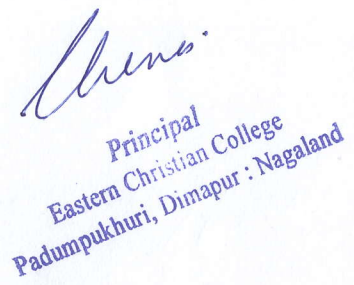 Principal
Eastern Christian College
Padumpukhuri, Dimapur : Nagaland